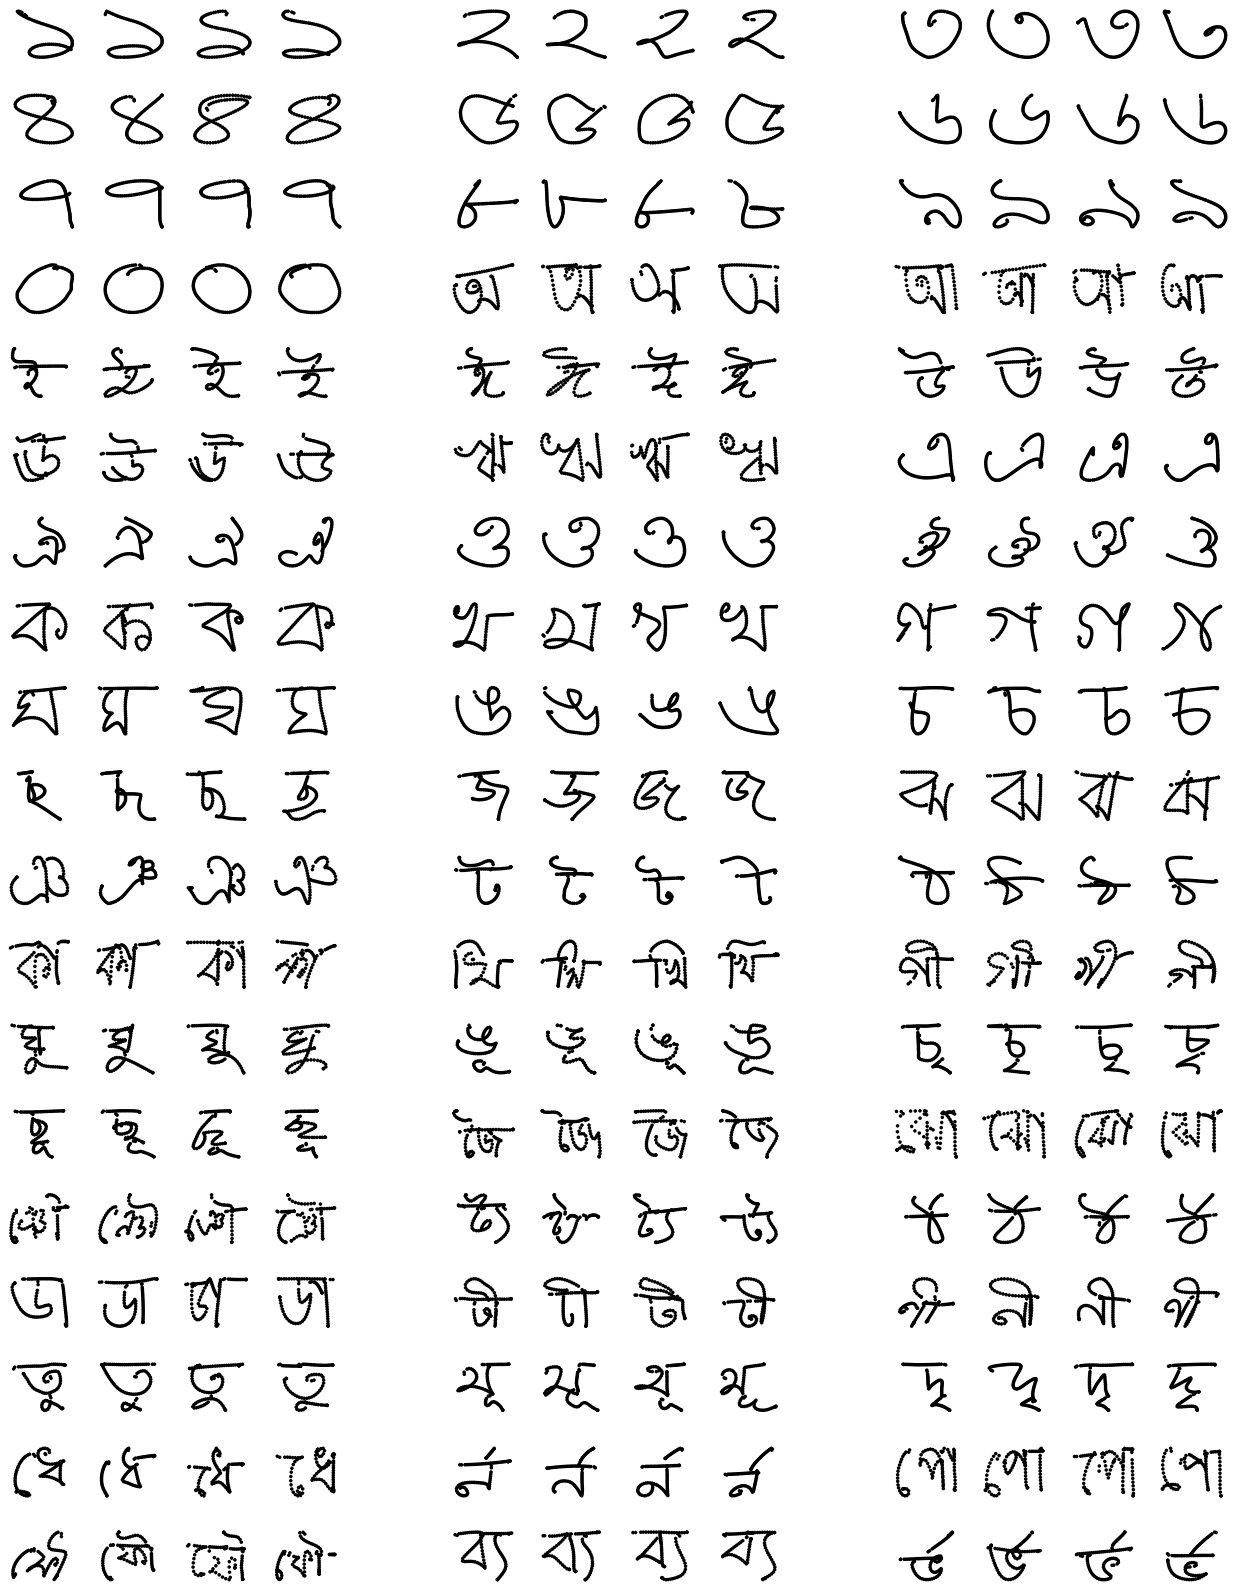 ১ ১ ১ ১ ২ ২ ২ ২ ৩ ৩ ৩ ৩
৪ ৪ ৪ ৪ ৫ ৫ ৫ ৫ ৬ ৬ ৬ ৬
৭ ৭ ৭ ৭ ৮ ৮ ৮ ৮ ৯ ৯ ৯ ৯
০ ০ ০ ০ অ অ অ অ আ আ আ আ
ই ই ই ই ঈ ঈ ঈ ঈ উ উ উ উ
ঊ ঊ ঊ ঊ ঋ ঋ ঋ ঋ এ এ এ এ
ঐ ঐ ঐ ঐ ও ও ও ও ঔ ঔ ঔ ঔ
ক ক ক ক খ খ খ খ গ গ গ গ
ঘ ঘ ঘ ঘ ঙ ঙ ঙ ঙ চ চ চ চ
ছ ছ ছ ছ জ জ জ জ ঝ ঝ ঝ ঝ
ঞ ঞ ঞ ঞ ট ট ট ট ঠ ঠ ঠ ঠ
কা কা কা কা খি খি খি খি গী গী গী গী
ঘু ঘু ঘু ঘু ঙূ ঙূ ঙূ ঙূ চৃ চৃ চৃ চৃ
ছূ ছূ ছূ ছূ জৈ জৈ জৈ জৈ ঝো ঝো ঝো ঝো
ঞৌ ঞৌ ঞৌ ঞৌ ট্য ট্য ট্য ট্য র্ঠ র্ঠ র্ঠ র্ঠ
ডা ডা ডা ডা টী টী টী টী নী নী নী নী
তু তু তু তু থূ থূ থূ থূ দৃ দৃ দৃ দৃ
ধে ধে ধে ধে র্ন র্ন র্ন র্ন পো পো পো পো
ফৌ ফৌ ফৌ ফৌ ব্য ব্য ব্য ব্য র্ভ র্ভ র্ভ র্ভ